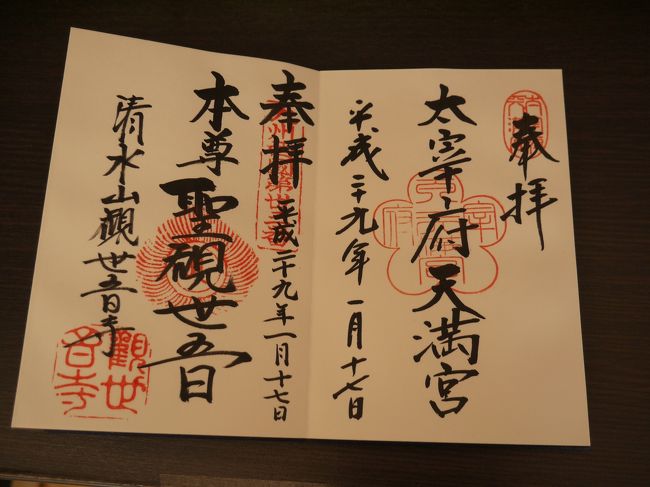 奉拝
太宰府天満宮
平成二十九年一月十七日
奉拝
平成二十九年一月十七日
本尊
聖観世音
清水山観世音寺
觀世音寺